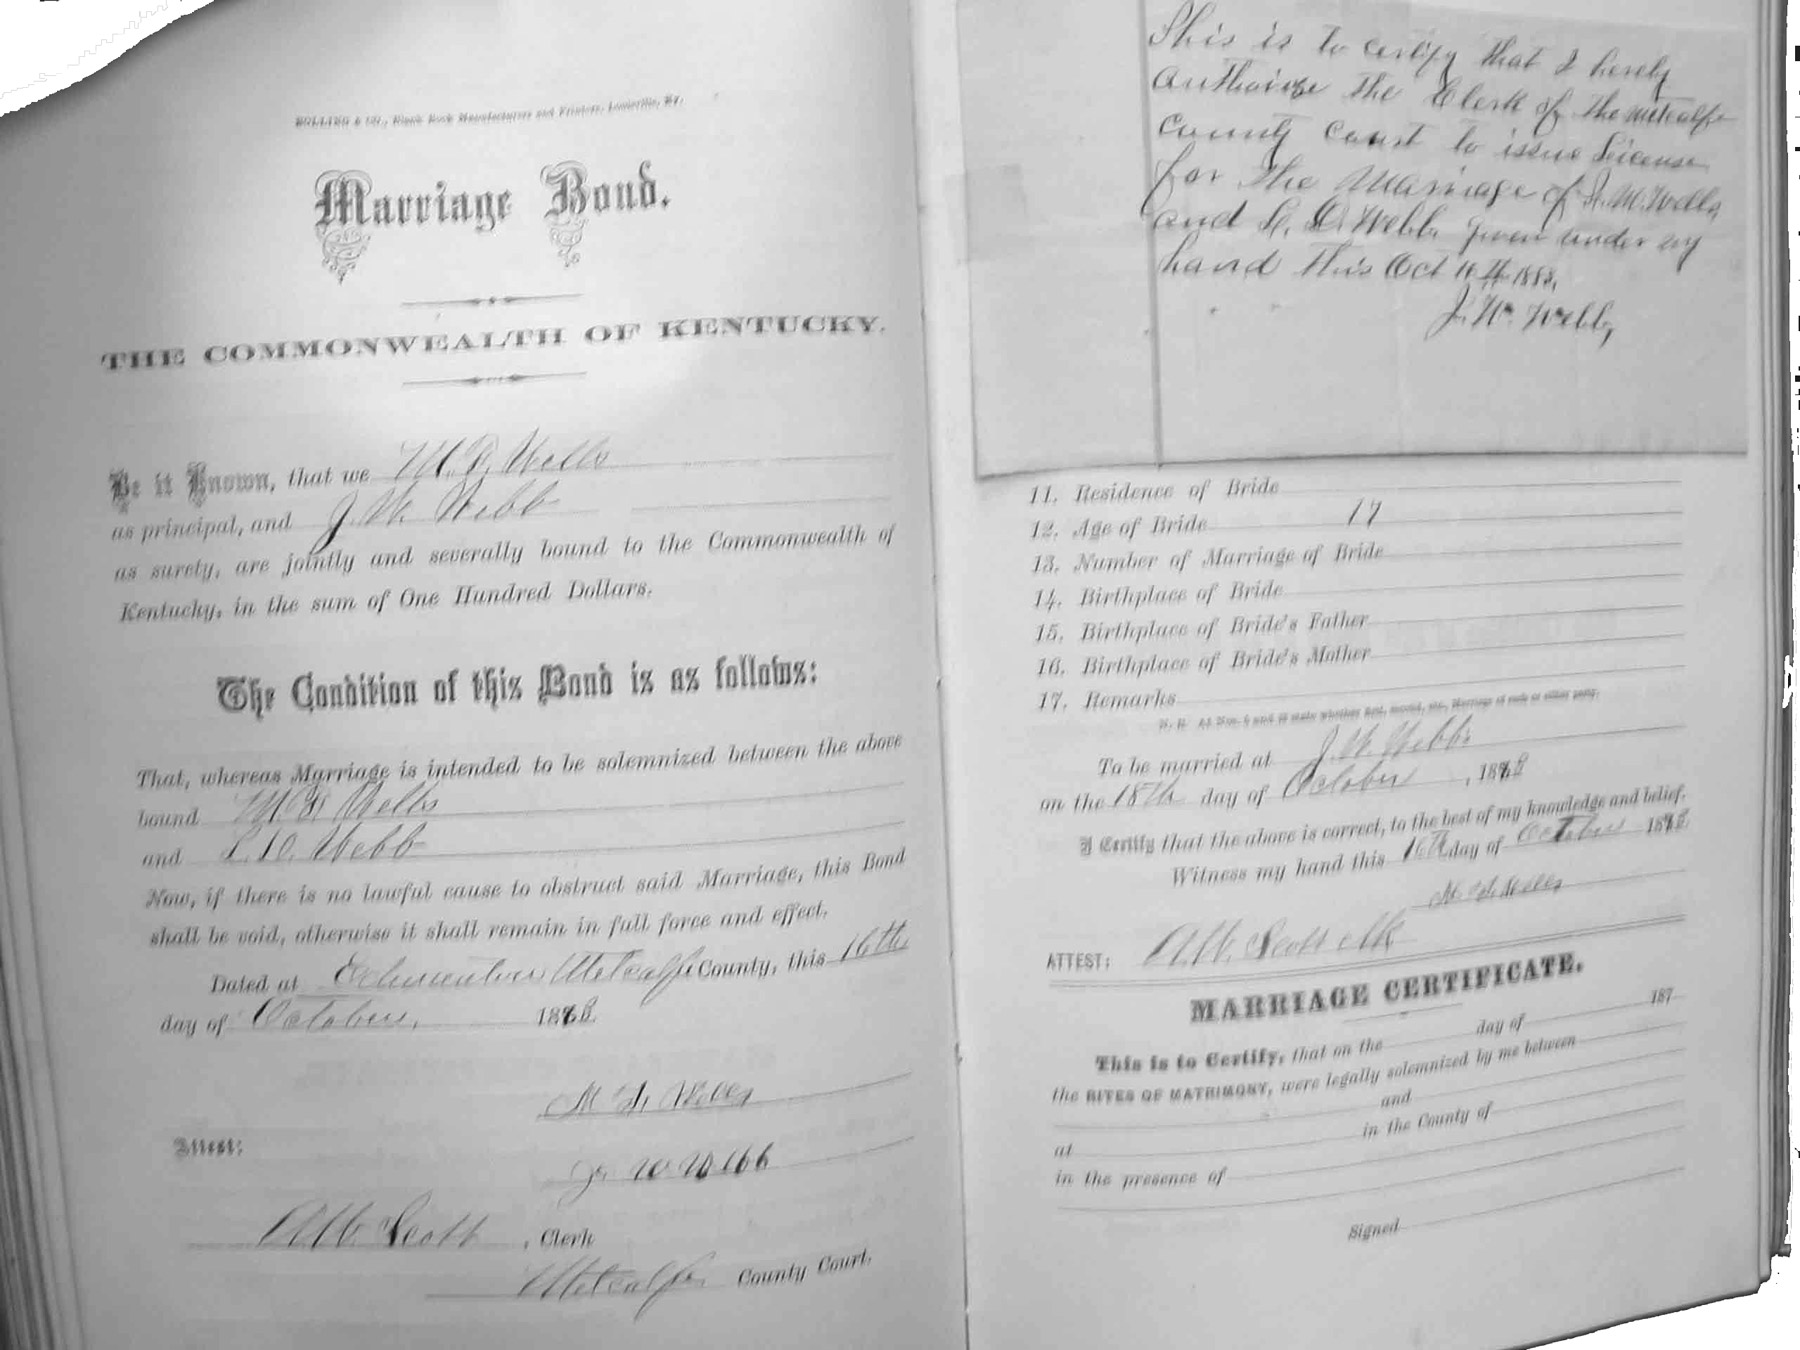 ROLLING & CO., Blank Book Manufacturers and Printers, Louisville, Ky.
Marriage Bond.
THE COMMONWEALTH OF KENTUCKY.
Be it Known, that we M. F. Wells
as principal, and J. W. Webb
as surety, are jointly and severally bound to the Commonwealth of
Kentucky, in the sum of One Hundred Dollars.
The Condition of this Bond is as follows:
That, whereas Marriage is intended to be solemnized between the above
bound M. F. Wells
and L. D. Webb
Now, if there is no lawful cause to obstruct said Marriage, this Bond
shall be void, otherwise it shall remain in full force and effect.
Dated at Edmonton Metcalfe County, this 16th
day of October, 1888.
M F. Wells
Attest: J. W Webb
A. W. Scott, Clerk
Metcalfe County Court.
This is to certify that I hereby
authorize the Clerk of the Metcalfe
county court to issue License
for the Marriage of M. Wells
and L. D. Webb given under my
hand this Oct 1888,
J. W. Webb,
11. Residence of Bride
12. Age of Bride 17
13. Number of Marriage of Bride
14. Birthplace of Bride
15. Birthplace of Bride's Father
16. Birthplace of Bride's Mother
17. Remarks
N. B. At Nos. and state whether first, second, etc., Marriage of each or either party.
To be married at J. W. Webbs
on the 18th day of October, 1888
I Certify that the above is correct, to the best of my knowledge and belief.
Witness my hand this 16th day of October 1888.
M. F. Wells
ATTEST: A. W. Scott clk
MARRIAGE CERTIFICATE.
This is to Certify, that on the day of 187
the RITES OF MATRIMONY, were legally solemnized by me between
and
at in the County of
in the presence of
Signed